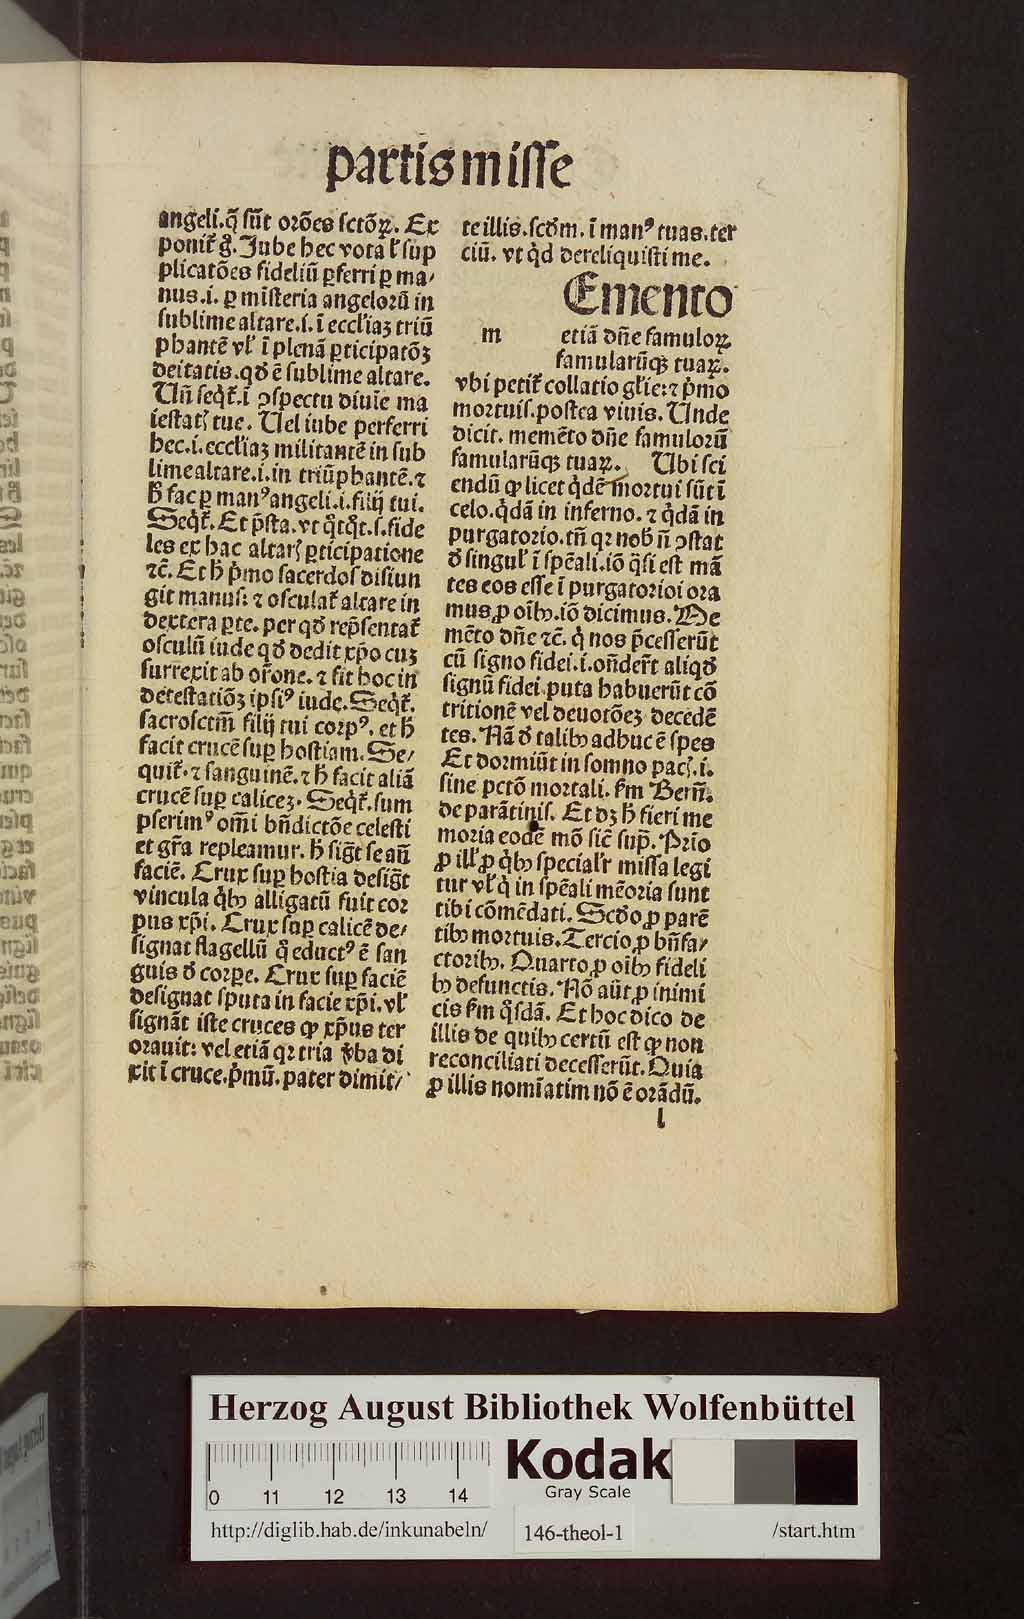 partis misse
angeli.q̃ sũt orões sctõꝝ. Ex
ponit̃ g̊. Jube hec vota l̃ sup
plicatões fideliũ ꝑferri ꝑ ma⸗
nus.i. ꝑ mĩsteria angelorũ in
sublime altare.i. ĩ eccl̃iaꝫ triũ
phantẽ vl̃ ĩ plenã ꝑticipatõꝫ
deitatis.qđ ẽ sublime altare.
Uñ seq̃t̃.ĩ ↄspectu diuĩe ma
iestatꝭ tue. Uel iube perferri
hec.i.eccl̃iaꝫ militantẽ in sub
lime altare.i.in triũphantẽ.⁊
h̃ fac ꝑ manꝰ angeli.i.filij tui.
Seq̃t̃. Et p̃sta.vt q̊tq̊t.s.fide
les ex hac altarꝭ ꝑticipatione
⁊c̃. Et h̃ p̊mo sacerdos disiun
git manus: ⁊ osculat̃ altare in
dextera ꝑte. per qđ rep̃sentat̃
osculũ iude qđ dedit xp̃o cuꝫ
surrexit ab or̃one. ⁊ fit hoc in
detestatiõꝫ ipsiꝰ iude. Seq̃t̃.
sacrosctm̃ filij tui corpꝰ. et h̃
facit crucẽ suꝑ hostiam. Se⸗
quit̃.⁊ sanguinẽ.⁊ h̃ facit aliã
crucẽ suꝑ caliceꝫ. Seq̃t̃.sum
pserimꝰ om̃i bñdictõe celesti
et gr̃a repleamur. h̃ sig̃t se añ
faciẽ. Crux suꝑ hostia desig̃t
vincula q̊bꝫ alligatũ fuit cor
pus xp̃i. Crux suꝑ calicẽ de⸗
signat flagellũ q̊ eductꝰ ẽ san
guis đ corꝑe. Crux suꝑ faciẽ
designat sputa in facie xp̃i. vl̃
signãt iste cruces ꝙ xp̃us ter
orauit: vel etiã qꝛ tria v̾ba di
xit ĩ cruce.p̊mũ. pater dimit⸗
te illis.scđm. ĩ manꝰ tuas.ter
ciũ. vt q̊d dereliquisti me.
Emento
m etiã dñe famuloꝝ
famularũqꝫ tuaꝝ.
vbi petit̃ collatio gl̃ie: ⁊ p̊mo
mortuis.postea viuis. Unde
dicit. memẽto dñe famulorũ
famularũqꝫ tuaꝝ. Ubi sci
endũ ꝙ licet q̊dẽ mortui sũt ĩ
celo.q̊dã in inferno. ⁊ q̊dã in
purgatorio.tñ qꝛ nob̃ ñ ↄstat
đ singul̃ ĩ spẽali.iõ q̃si est mã
tes eos esse ĩ purgatorioi ora
mus ꝓ oĩbꝫ.iõ dicimus. Me
mẽto dñe ⁊c̃. q̊ nos p̃cesserũt
cũ signo fidei.i.oñderẽt aliqđ
signũ fidei.puta habuerũt cõ
tritionẽ vel deuotõeꝫ decedẽ
tes. Nã đ talibꝫ adhuc ẽ spes
Et dormiũt in somno pacꝭ.i.
sine pctõ mortali. fm̃ Berñ.
de parãtinis. Et dꝫ h̃ fieri me
moria eodẽ mõ sic̃ sup̃. Prĩo
ꝓ ill̃ ꝓ q̊bꝫ special̃r missa legi
tur vl̃ q̊ in spẽali mẽoria sunt
tibi cõmẽdati. Scđo ꝓ parẽ
tibꝫ mortuis. Tercio ꝓ bñfa⸗
ctoribꝫ. Quarto ꝓ oĩbꝫ fideli
bꝫ defunctis. Nõ aũt ꝓ inimi
cis fm̃ q̊sdã. Et hoc dico de
illis de quibꝫ certũ est ꝙ non
reconciliati decesserũt. Quia
ꝓ illis nomĩatim nõ ẽ orãdũ.
l
Herzog August Bibliothek Wolfenbüttel
0 11 12 13 14
Kodak
Gray Scale
http://diglib.hab.de/inkunabeln/ 146-theol-1 /start.htm